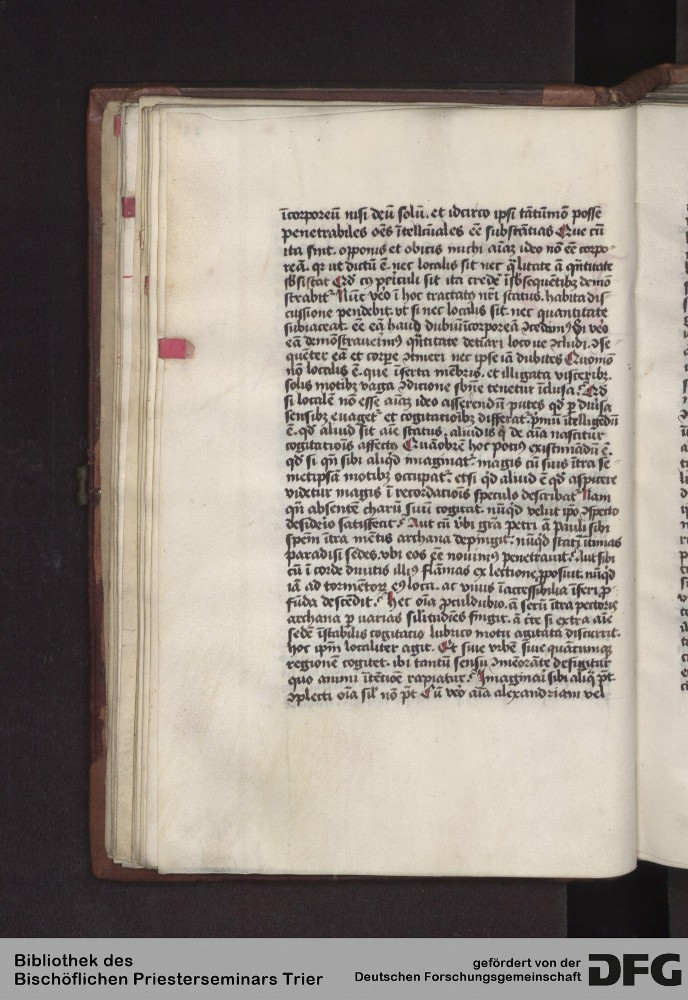 īcorporeū nisi deū solū. et idcirco ipsī tātūmō posse
penetrabiles oēs ītellcūales eē substātias Que cū
ita sint. opponis et obicis michi aīaȝ ideo nō eē corpo-
reā. qr ut dictū ē. nec localis sit nec q̄litate ā qn̄titate
sƀsistat Qd̄ cȝ piculi sit ita credē īsƀsequētibȝ demō
strabit᷒ Nūc v̓o ī hoc tractatȝ nrī status. habita dis-
cussione pendebit. vt si nec localis sit. nec quantitate
subiaceat. eē eā haud dubiū īcorporeā ↄcedimȝ Si v̓o
eā demōstraverimȝ qn̄titate
quēter eā et corpe ↄtineri nec ipse iā dubites Quomō
nō localis ē. que īserta mēbris. et illigata visceribȝ.
solis motibȝ vaga ↄdicione sƀne tenetur īclusa? Qd̄
si localē nō esse aīaȝ ideo asserendū putes qd̄ p diu̓sa
sensibȝ evaget᷒ et cogitatioībȝ differat᷒. p̓mū ītelligēdū
ē. qd̄ aliud sit aīe status. aliud is q̓ de aīa nascitur
cogitatioīs affectȝ Quāobrē hoc potiȝ existimādū ē.
qd̄ si qn̄ sibi aliq̓d imaginat᷒. magis cū suis ītra se
metipsā motibȝ occupat᷒. etsi q̓d aliud ē qd̄ aspicere
videtur magis ī recordatiois speculo describat᷒ Nam
qn̄ absentē charū suū cogitat. nūq̓d velut ipo ↄspecto
desiderio satisfecit? Aut cū v̓bi grā petri ā pauli sibi
spem ītra mētis archana depingit. nūq̓d statī ītimas
paradisi sedes. vbi eos eē novimȝ penetravit? Aut sibi
cū ī corde divitis illiȝ flāmas ex lectione ꝓposuit. nūq̓d
iā ad tormētorꝝ eȝ loca. ac vivis īaccessibilia īferi ꝓ
fūda descēdit? Hec oīa ꝓculdubio. ā secū ītra pectoris
archana p varias silitudīes fingit. ā c̓te si extra aīe
sedē īstabilis cogitatio lubrico motu agitata discurrit.
hoc ipm̄ localiter agit. Et sive vrbē sive quācumqȝ
regionē cogitet. ibi tantū sensu ↄmēorāte defigitur
quo animi ītētiōe rapiatur? Imaginari sibi aliq̓ pt̄.
ↄplecti oīa sil̓ nō pt̄ Cū v̓o aīa alexandriam vel
Bibliothek des
Bischöflichen Priesterseminars Trier
gefördert von der
Deutschen Forschungsgemeinschaft
DFG